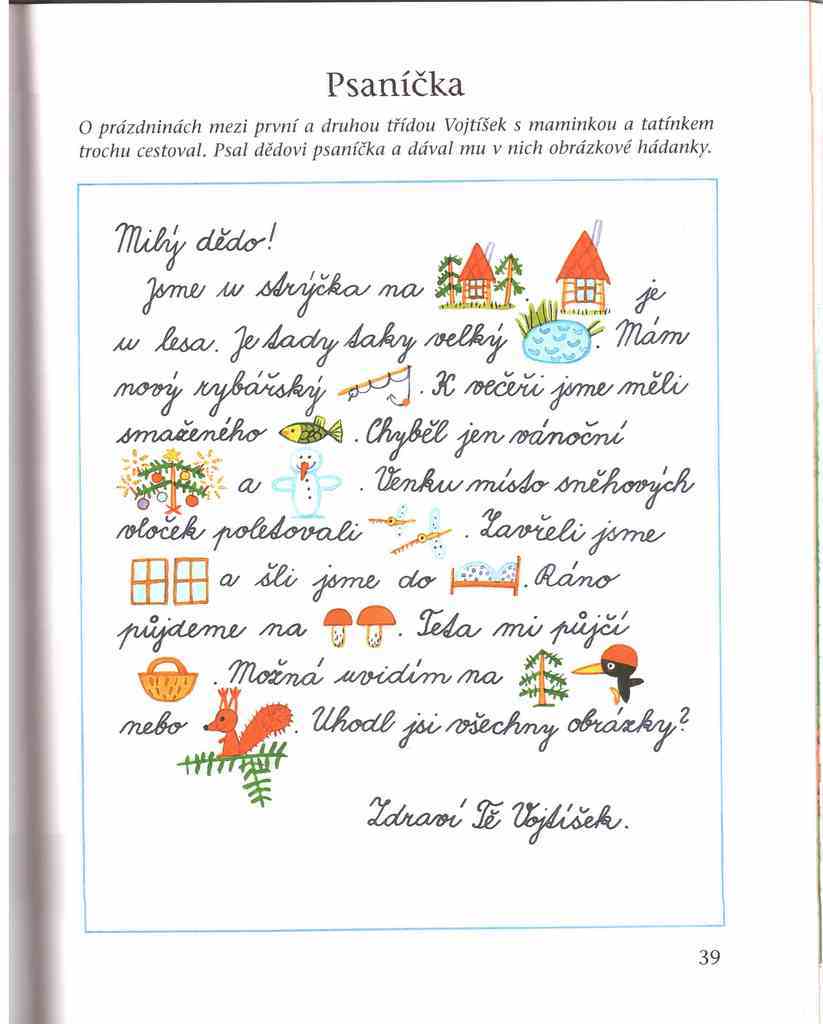 Psaníčka
O prázdninách mezi první a druhou třídou Vojtíšek s maminkou a tatínkem
trochu cestoval. Psal dědovi psaníčka a dával mu v nich obrázkové hádanky.
Milý dědo!
Jsme u strýčka na . je
u lesa. Je tady taky velký . Mám
nový rybářský . K večeři jsme měli
smaženého . Chyběl jen vánoční
a . Venku místo sněhových
vloček poletovali . Zavřeli jsme
a šli jsme do . Ráno
půjdeme na . Teta mi půjčí
. Možná uvidím na
nebo . Uhodl jsi všechny obrázky?
Zdraví Tě Vojtíšek.
39